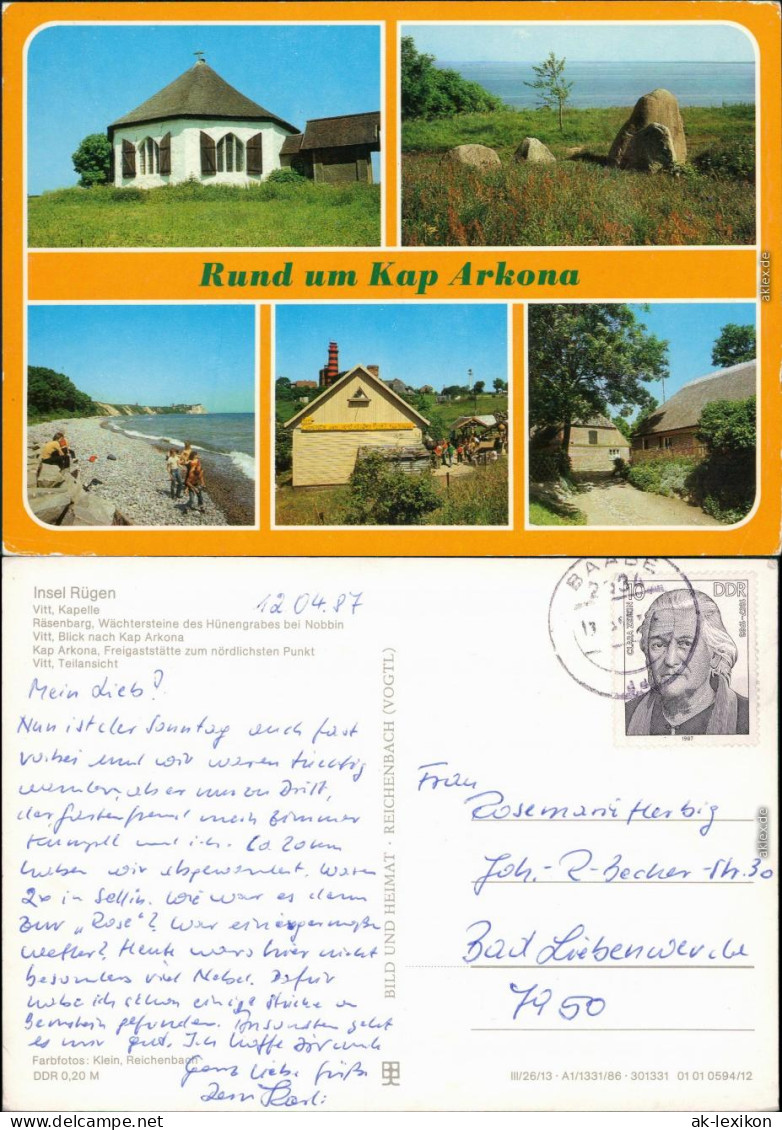 Rund um Kap Arkona
aklex.de
Insel Rügen
Vitt, Kapelle
Räsenbarg, Wächtersteine des Hünengrabes bei Nobbin
Vitt, Blick nach Kap Arkona
Kap Arkona, Freigaststätte zum nördlichsten Punkt
Vitt, Teilansicht
12.04.87
Mein Lieb!
Nun ist der Sonntag auch fast
vorbei und wir waren tüchtig
wandern, aber nur zu Dritt,
der Gartenfreund mein Zimmer
kumpel und ich. Ca 20 km
haben wir abgewandert. Waren
2x in Sellin. Wie war es denn
zur „Rose"? War einigermaßen
Wetter? Heute wars hier nicht
besonders viel Nebel. Dafür
habe ich schon einige Stücke
Bernstein gefunden. Ansonsten geht
es mir gut. Ich hoffe Dir auch
Ganz liebe Grüße
Dein
Farbfotos: Klein, Reichenbach
DDR 0,20 M
BILD UND HEIMAT · REICHENBACH (VOGTL)
BAABE
10
DDR
CLARA ZETKIN
1987
Frau
Rosemarie Herbig
Joh.-R-Becher-Str. 30
Bad Liebenwerda
7950
III/26/13 · A1/1331/86 · 301331 01 01 0594/12
aklex.de
www.ansichtskarten-lexikon.de
ak-lexikon